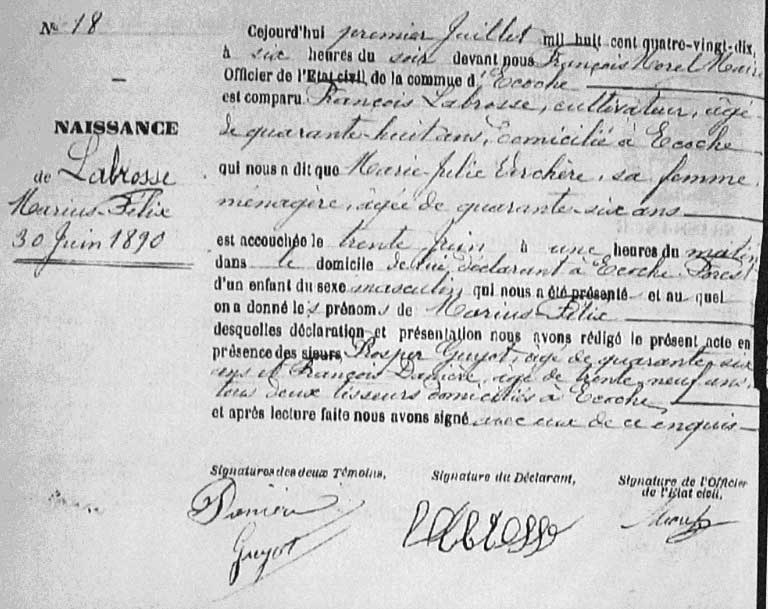 N° 18
NAISSANCE
de Labrosse
Marius-Félix
30 Juin 1890
Cejourd'hui premier Juillet mil huit cent quatre-vingt-dix,
à six heures du soir devant nous François Morel Maire
Officier de l'Etat civil, de la commune d'Ecoche
est comparu François Labrosse, cultivateur, âgé
de quarante-huit ans, domicilié à Ecoche
qui nous a dit que Marie-Julie Verchère, sa femme,
ménagère, âgée de quarante-six ans
est accouchée le trente juin à une heures du matin
dans le domicile de lui déclarant à Ecoche
d'un enfant du sexe masculin, qui nous a été présenté et au quel
on a donné les prénoms de Marius-Félix
desquelles déclaration et présentation nous avons rédigé le présent acte en
présence des sieurs Prosper Guyot, âgé de quarante-six
ans et François Danière, âgé de trente-neuf ans,
tous deux tisseurs domiciliés à Ecoche
et après lecture faite nous avons signé avec eux de ce enquis
Signatures des deux Témoins, Signature du Déclarant, Signature de l'Officier
de l'Etat civil.
Danière
Labrosse
Guyot